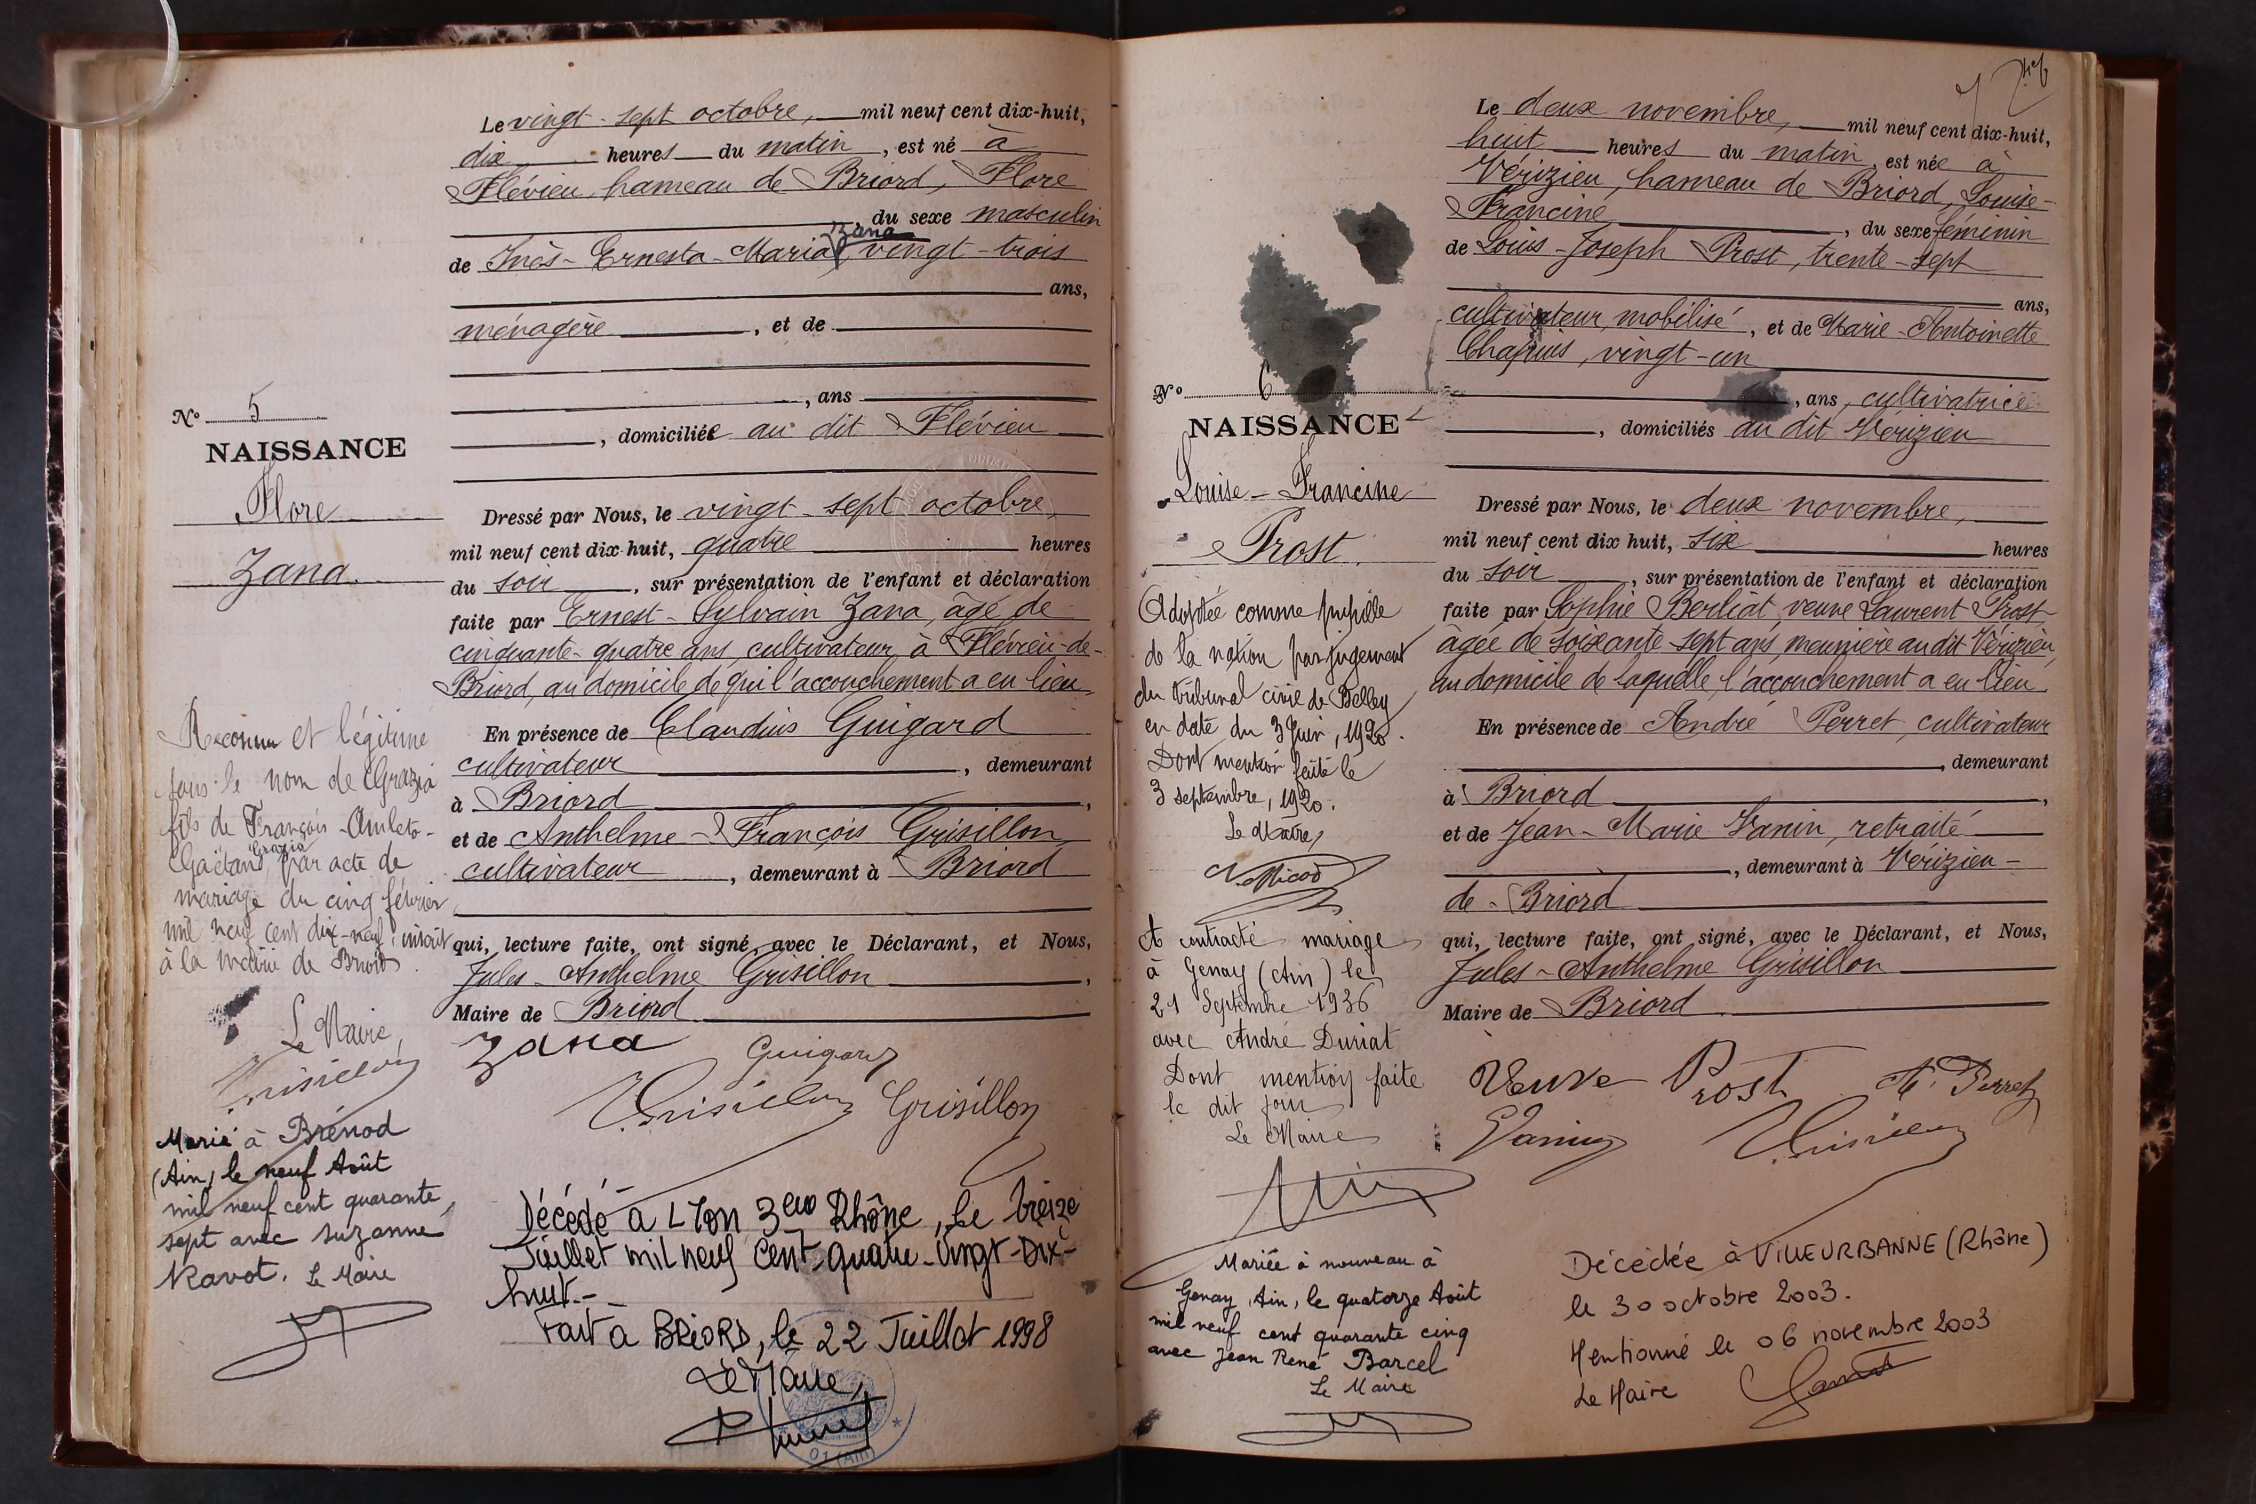 Le vingt-sept octobre, mil neuf cent dix-huit,
dix heures du matin, est né à
Flévieu, hameau de Briord, Flore
, du sexe masculin
Zana
de Inès-Ernesta-Maria vingt-trois
ans,
ménagère, et de
, ans
, domiciliée au dit Flévieu
Nº 5
NAISSANCE
Flore
Zana
Dressé par Nous, le vingt-sept octobre,
mil neuf cent dix-huit, quatre heures
du soir, sur présentation de l'enfant et déclaration
faite par Ernest-Sylvain Zana, âgé de
cinquante-quatre ans, cultivateur à Flévieu-de-
Briord, au domicile de qui l'accouchement a eu lieu,
En présence de Claudius Guigard
cultivateur, demeurant
à Briord,
et de Anthelme-François Grisillon,
cultivateur, demeurant à Briord
qui, lecture faite, ont signé, avec le Déclarant, et Nous,
Jules-Anthelme Grisillon,
Maire de Briord
Zana Guigard
Grisillon Grisillon
Reconnu et légitimé
sous le nom de Grazia
fils de François-Amleto-
Grazia
Gaëtano, par acte de
mariage du cinq février
mil neuf cent dix-neuf, inscrit
à la mairie de Briord.
Le Maire,
Grisillon
Marié à Brénod
(Ain) le neuf Août
mil neuf cent quarante
sept avec Suzanne
Ravot. Le Maire
Décédé à Lyon 3eme Rhône, le treize
Juillet mil neuf Cent-quatre-Vingt-Dix-
huit.-
Fait à BRIORD, le 22 Juillet 1998
Le Maire,
01 (Ain)
Le deux novembre, mil neuf cent dix-huit,
huit heures du matin, est née à
Vérizieu, hameau de Briord, Louise-
Francine, du sexe féminin
de Louis-Joseph Prost, trente-sept
ans,
cultivateur, mobilisé, et de Marie-Antoinette
Chapuis, vingt-un
, ans, cultivatrice
, domiciliés au dit Vérizieu
Nº 6
NAISSANCE
Louise-Francine
Prost.
Dressé par Nous, le deux novembre,
mil neuf cent dix huit, six heures
du soir, sur présentation de l'enfant et déclaration
faite par Sophie Berliat, veuve Laurent Prost
âgée de soixante-sept ans, meunière au dit Vérizieu,
au domicile de laquelle l'accouchement a eu lieu.
En présence de André Perret, cultivateur
, demeurant
à Briord,
et de Jean-Marie Vanin, retraité
, demeurant à Vérizieu-
de-Briord
qui, lecture faite, ont signé, avec le Déclarant, et Nous,
Jules-Anthelme Grisillon
Maire de Briord
Veuve Prost A. Perret
Vanin Grisillon
Adoptée comme pupille
de la nation par jugement
du Tribunal civil de Belley
en date du 3 Juin, 1920.
Dont mention faite le
3 septembre, 1920.
Le Maire,
A contracté mariage
à Genay (Ain) le
21 Septembre 1936
avec André Duriat
Dont mention faite
le dit jour
Le Maire
Mariée à nouveau à
Genay, Ain, le quatorze Août
mil neuf cent quarante cinq
avec Jean René Barcel
Le Maire
Décédée à VILLEURBANNE (Rhône)
le 30 octobre 2003.
Mentionné le 06 novembre 2003
Le Maire